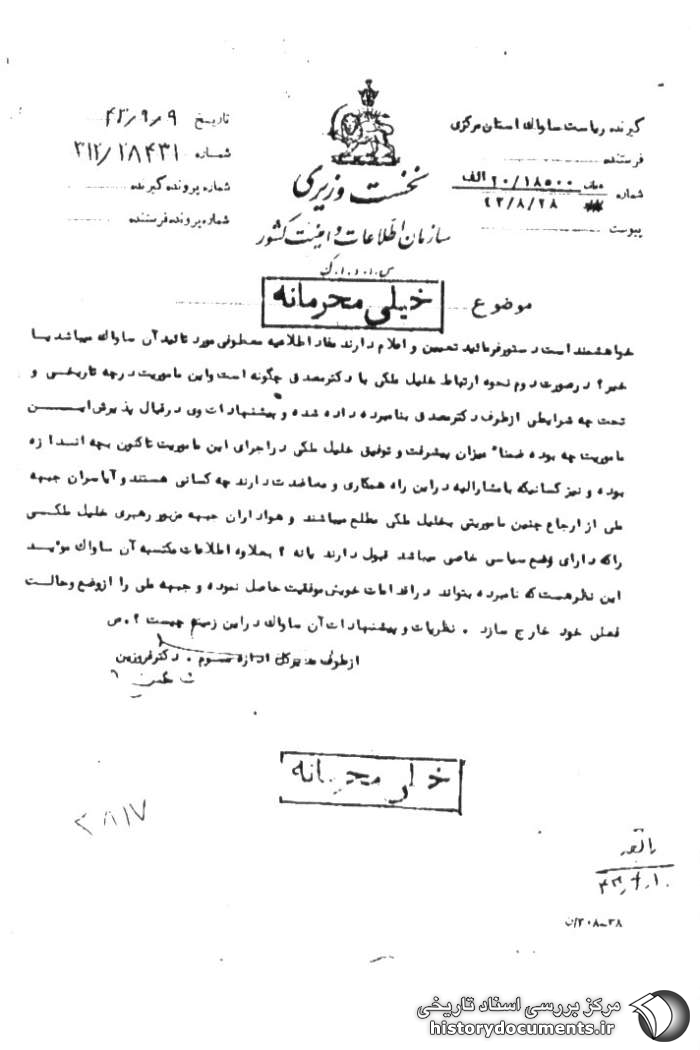 گیرنده ریاست ساواک استان مرکزی
فرستنده
شماره ۲۰/۱۸۵۰۰ الف
۴۳/۸/۲۸
پیوست
نخست وزیری
سازمان اطلاعات و امنیت کشور
س.ا.و.ا.ک
تاریخ ۴۳/۹/۹
شماره ۳۱۲/۲۸۴۳۱
شماره پرونده گیرنده
شماره پرونده فرستنده
موضوع
خیلی محرمانه
خواهشمند است دستور فرمائید تعیین و اعلام دارند مفاد اطلاعیه معطوفی مورد تائید آن ساواک میباشد یا
خیر ؟ در صورت دوم نحوه ارتباط خلیل ملکی با دکتر مصدق چگونه است و این ماموریت در چه تاریخی و
تحت چه شرایطی از طرف دکتر مصدق بنامبرده داده شده و پیشنهادات وی در قبال پذیرش این
ماموریت چه بوده ضمناً میزان پیشرفت و توفیق خلیل ملکی در اجرای این ماموریت تاکنون بچه اندازه
بوده و نیز کسانیکه با مشارالیه در این راه همکاری و معاضدت دارند چه کسانی هستند و آیا سران جبهه
ملی از ارجاع چنین ماموریتی بخلیل ملکی مطلع میباشند و هواداران جبهه مزبور رهبری خلیل ملکی
را که دارای وضع سیاسی خاصی میباشد قبول دارند یا نه ؟ بعلاوه اطلاعات مکتسبه آن ساواک موید
این نظر هست که نامبرده بتواند در اقدامات خویش موفقیت حاصل نموده و جبهه ملی را از وضع و حالت
فعلی خود خارج سازد . نظریات و پیشنهادات آن ساواک در این زمینه چیست ؟ .ص
از طرف مدیرکل اداره سوم . دکتر فروزین
خیلی محرمانه
۲۰۸-۳۸/ن
مرکز بررسی اسناد تاریخی
historydocuments.ir